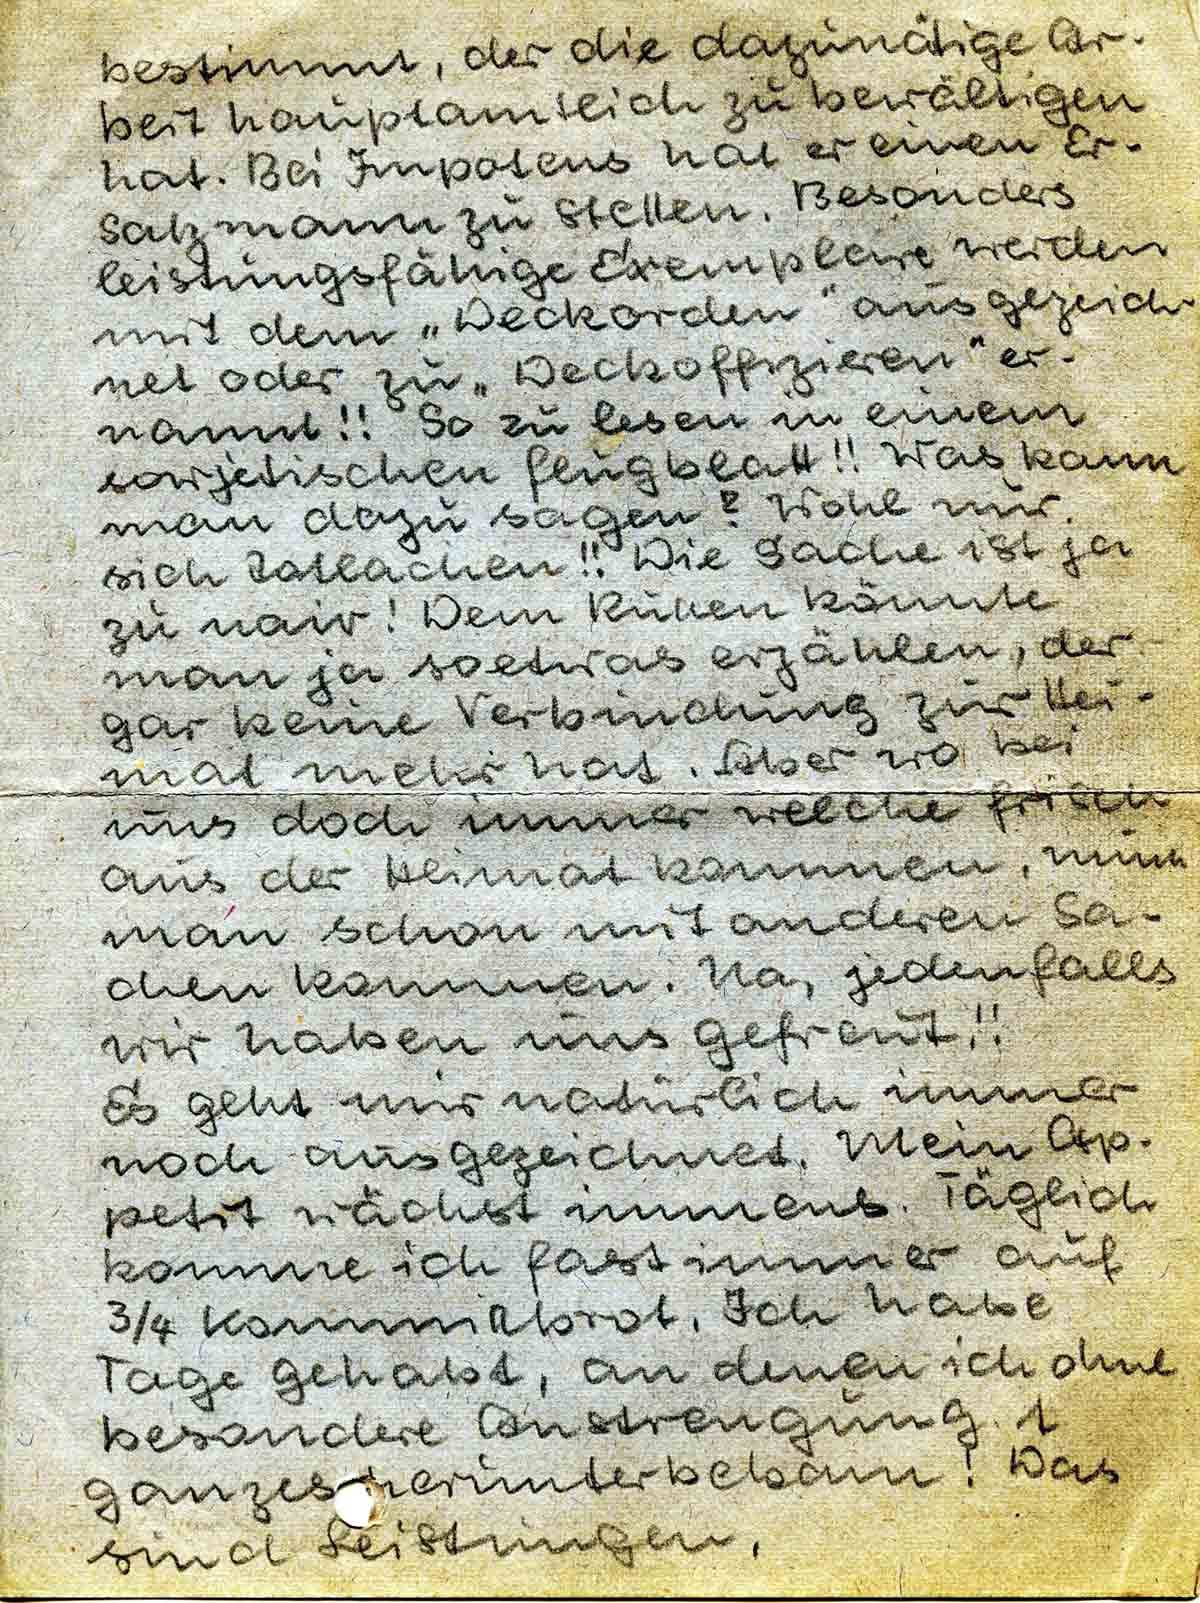 bestimmt, der die dazunötige Ar-
beit hauptamtlich zu bewältigen
hat. Bei Impotens hat er einen Er-
satzmann zu stellen. Besonders
leistungsfähige Exemplare werden
mit dem „Deckorden" ausgezeich
net oder zu „Deckoffizieren" er-
nannt!! So zu lesen in einem
sowjetischen Flugblatt!! Was kann
man dazu sagen? Wohl nur
sich totlachen!! Die Sache ist ja
zu naiv! Dem könnte
man ja soetwas erzählen, der
gar keine Verbindung zur Hei-
mat mehr hat. Aber wo bei
uns doch immer welche frisch
aus der Heimat kommen, muss
man schon mit anderen Sa-
chen kommen. Na, jedenfalls
wir haben uns gefreut!!
Es geht mir natürlich immer
noch ausgezeichnet. Mein Ap-
petit wächst immens. Täglich
komme ich fast immer auf
3/4 Kommißbrot. Ich habe
Tage gehabt, an denen ich ohne
besondere Anstrengung 1
ganzes herunterbekam! Das
sind Leistungen.